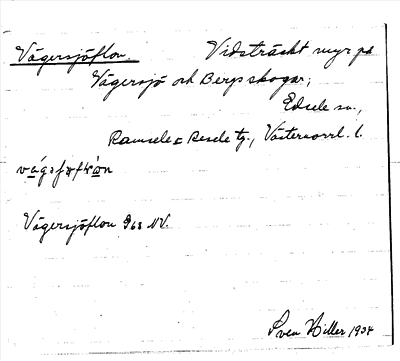 Vägersjöflon. Vidsträckt myr på
Vägersjö och Bergs skogar,
Edsele sn.,
Ramsele o Resele tg., Västernorrl. l.
Vägersjöflon 968 NV.
Sven Hiller 1934